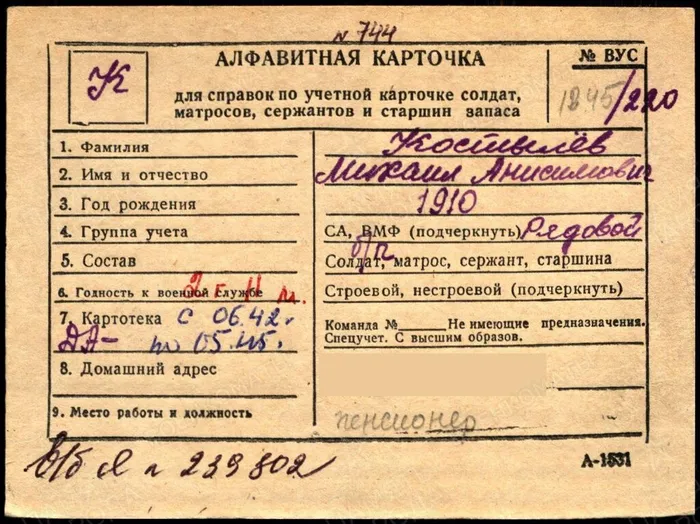 № 744
К
АЛФАВИТНАЯ КАРТОЧКА
для справок по учетной карточке солдат,
матросов, сержантов и старшин запаса
№ ВУС
1845/220
1. Фамилия Костылёв
2. Имя и отчество Михаил Анисимович
3. Год рождения 1910
4. Группа учета СА, ВМФ (подчеркнуть) Рядовой
б/п
5. Состав Солдат, матрос, сержант, старшина
6. Годность к военной службе Строевой, нестроевой (подчеркнуть)
7. Картотека с 06.42г.
ДА- по 05.45.
Команда №______ Не имеющие предназначения.
Спецучет. С высшим образов.
8. Домашний адрес
9. Место работы и должность пенсионер
в/б Я № 239802
А-1531